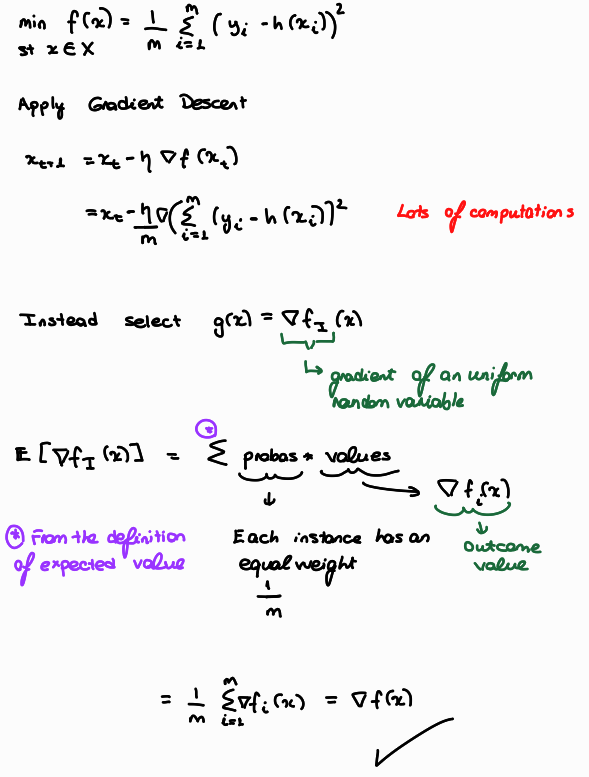 min f(x) = 1/m Σ_{i=1}^{m} (y_i - h(x_i))²
st x ∈ X
Apply Gradient Descent
x_{t+1} = x_t - η ∇f(x_t)
= x_t - η/m ∇(Σ_{i=1}^{m} (y_i - h(x_i))² Lots of computations
Instead select g(x) = ∇f_I(x)
↳ gradient of an uniform
random variable
E[∇f_I(x)] = Σ probas * values
* ∇f_i(x)
* From the definition
of expected value
Each instance has an
equal weight
1/m
outcome
value
= 1/m Σ_{i=1}^{m} ∇f_i(x) = ∇f(x)